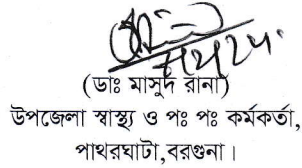 (ডাঃ মাসুদ রানা)
উপজেলা স্বাস্থ্য ও পঃ পঃ কর্মকর্তা,
পাথরঘাটা,বরগুনা।